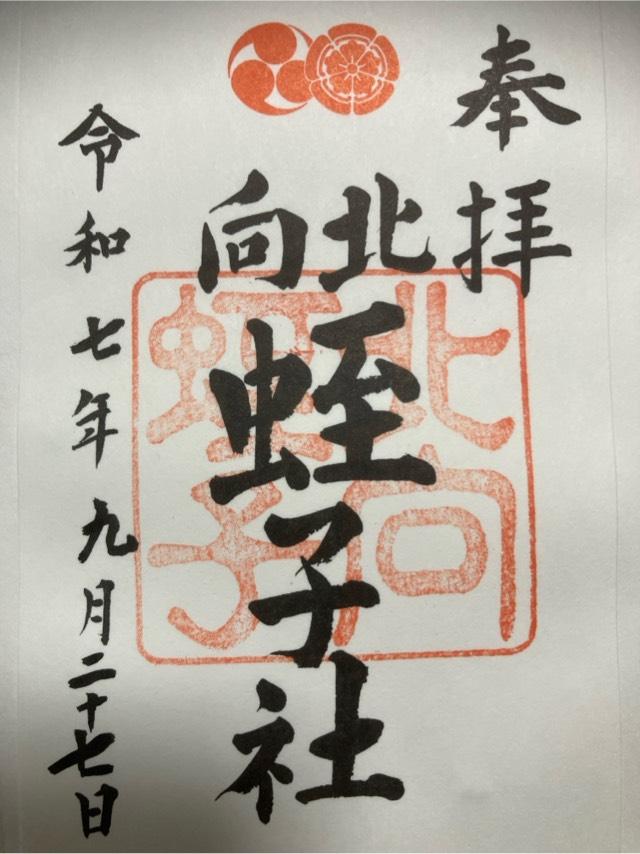 奉拝
北向
蛭子社
北向
蛭子
令和七年九月二十七日